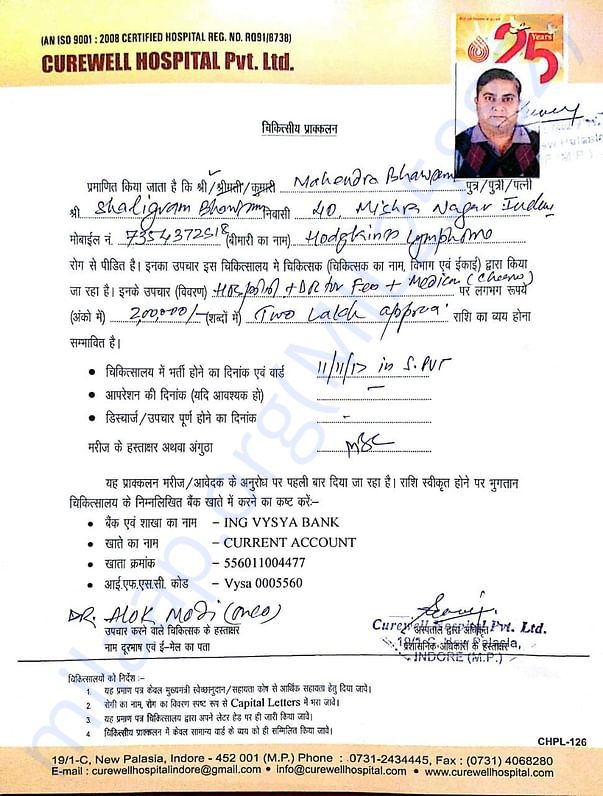 (AN ISO 9001 : 2008 CERTIFIED HOSPITAL REG. NO. RQ91/8738)
CUREWELL HOSPITAL Pvt. Ltd.
25 Years
चिकित्सीय प्राक्कलन
प्रमाणित किया जाता है कि श्री/श्रीमती/कुमारी Mahendra Bhawsar पुत्र/पुत्री/पत्नी
श्री Shaligram Bhawsar निवासी 40, Mishra Nagar Indore
मोबाईल नं. 7354372518 (बीमारी का नाम) Hodgkins Lymphoma
रोग से पीडित है। इनका उपचार इस चिकित्सालय मे चिकित्सक (चिकित्सक का नाम, विभाग एवं ईकाई) द्वारा किया
जा रहा है। इनके उपचार (विवरण) Hospital + DR for Fee + Medicin (Chemo) पर लगभग रूपये
(अंको में) 2,00,000/- (शब्दों में) Two Lakh approx राशि का व्यय होना
सम्भावित है।
• चिकित्सालय में भर्ती होने का दिनांक एवं वार्ड 11/11/17 in S.PVT
• आपरेशन की दिनांक (यदि आवश्यक हो) -
• डिस्चार्ज/उपचार पूर्ण होने का दिनांक -
मरीज के हस्ताक्षर अथवा अंगुठा
यह प्राक्कलन मरीज/आवेदक के अनुरोध पर पहली बार दिया जा रहा है। राशि स्वीकृत होने पर भुगतान
चिकित्सालय के निम्नलिखित बैंक खाते में करने का कष्ट करें:-
• बैंक एवं शाखा का नाम - ING VYSYA BANK
• खाते का नाम - CURRENT ACCOUNT
• खाता क्रमांक - 556011004477
• आई.एफ.एस.सी. कोड - Vysa 0005560
DR. Alok Modi (onco)
उपचार करने वाले चिकित्सक के हस्ताक्षर
नाम दूरभाष एवं ई-मेल का पता
Curewell Hospital Pvt. Ltd.
अस्पताल द्वारा अधिकृत
19/1-C, New Palasia,
प्रशासनिक अधिकारी के हस्ताक्षर
INDORE (M.P.)
चिकित्सालयों को निर्देश :-
1. यह प्रमाण पत्र केवल मुख्यमंत्री स्वेच्छानुदान/सहायता कोष से आर्थिक सहायता हेतु दिया जावें।
2. रोगी का नाम, रोग का विवरण स्पष्ट रूप से Capital Letters में भरा जावे।
3. यह प्रमाण पत्र चिकित्सालय द्वारा अपने लेटर हेड पर ही जारी किया जावें।
4. चिकित्सीय प्राक्कलन में केवल सामान्य वार्ड के व्यय को ही सम्मिलित किया जावें।
CHPL-126
19/1-C, New Palasia, Indore - 452 001 (M.P.) Phone : 0731-2434445, Fax : (0731) 4068280
E-mail : curewellhospitalindore@gmail.com • info@curewellhospital.com • www.curewellhospital.com